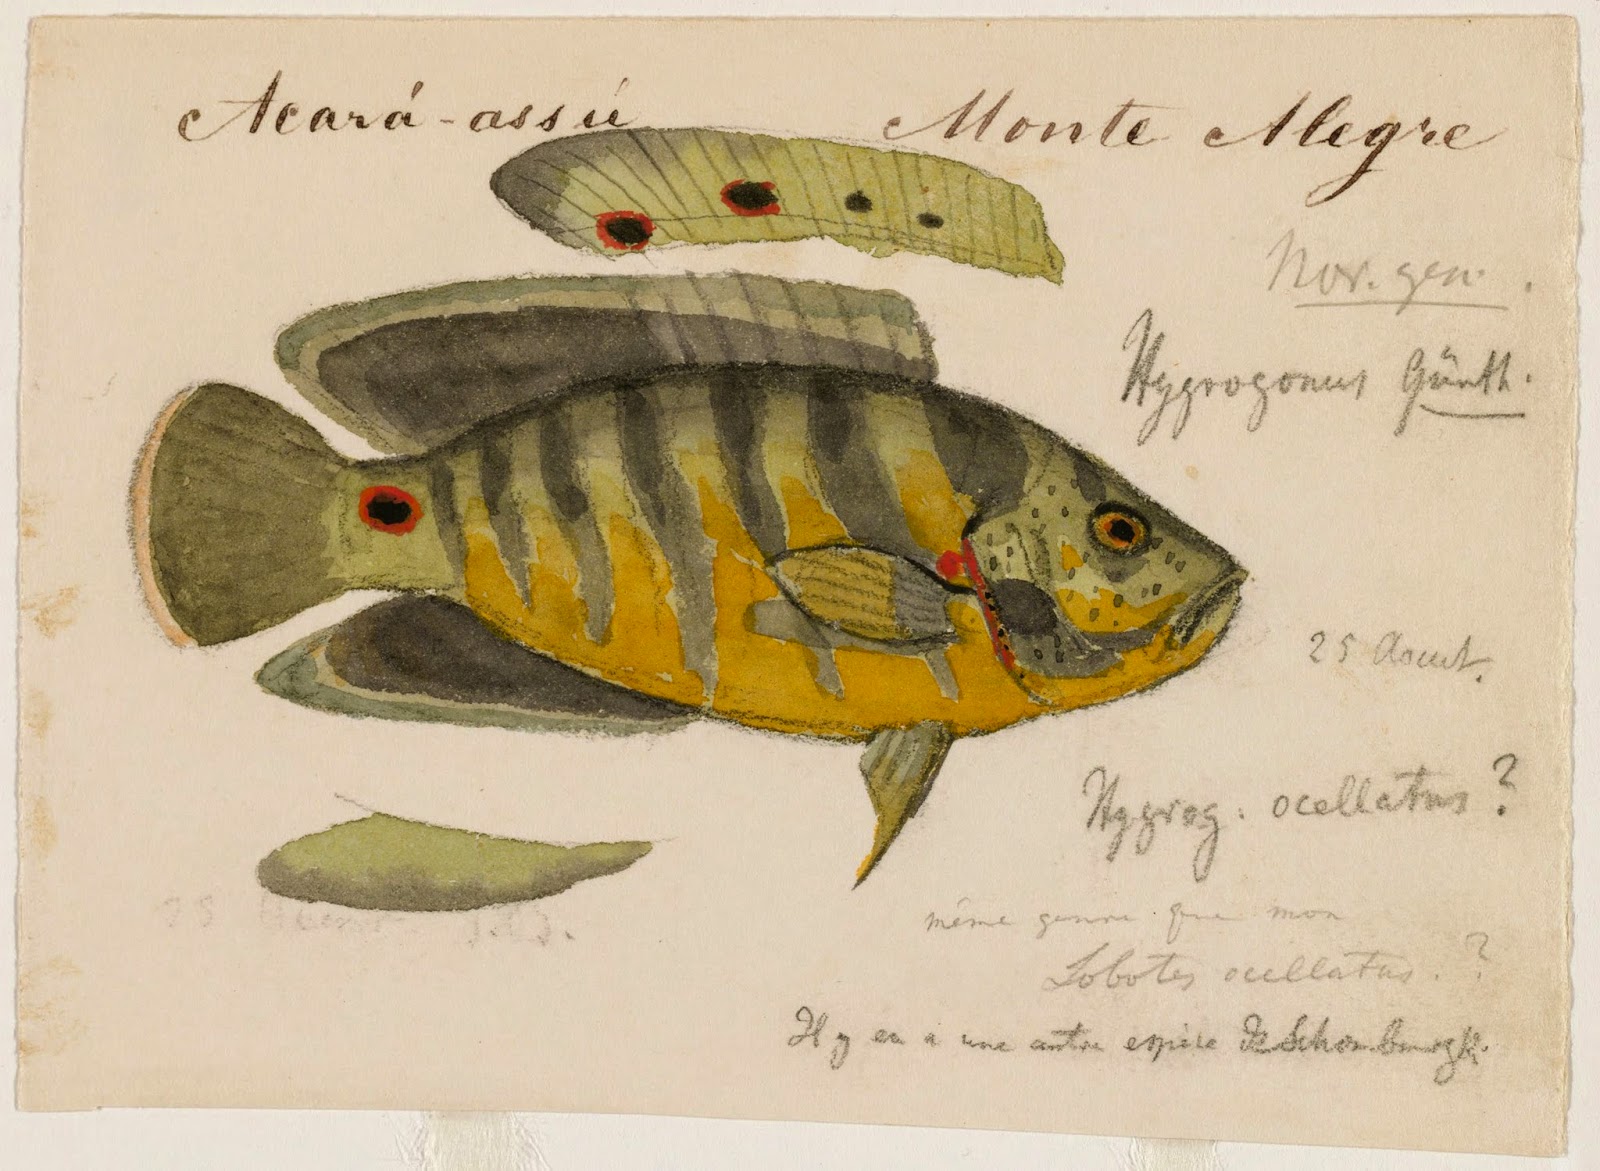 Acará-assú
Monte Alegre
Nov. gen.
Hygrogonus Günth.
25 Aout.
Hygrog. ocellatus ?
même genre que mon
Lobotes ocellatus. ?
Il y en a une autre espèce de Schomburgk.